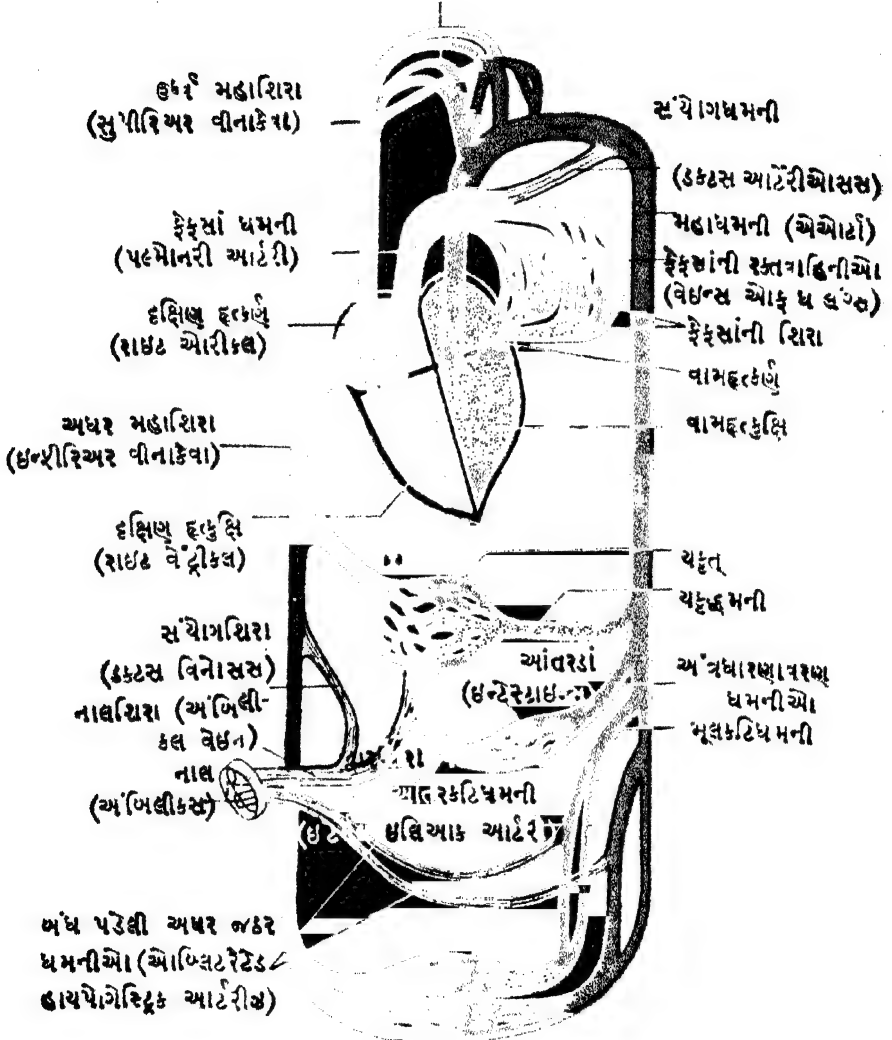 ઉર્ધ્વ મહાશિરા
(સુપીરિઅર વીનાકેવા)
ફેફસાં ધમની
(પલ્મોનરી આર્ટરી)
દક્ષિણ હૃત્કર્ણ
(રાઇટ ઓરીકલ)
અધર મહાશિરા
(ઇન્ફીરિઅર વીનાકેવા)
દક્ષિણ હૃત્કુક્ષિ
(રાઇટ વેંટ્રીકલ)
સંયોગશિરા
(ડકટસ વિનોસસ)
નાલશિરા (અંબિલી-
કલ વેઇન)
નાલ
(અંબિલીકસ)
બંધ પડેલી અધર જઠર
ધમનીઓ (ઓબ્લિટરેટેડ
હાયપોગેસ્ટ્રિક આર્ટરીઝ)
સંયોગધમની
(ડકટસ આર્ટેરીઓસસ)
મહાધમની (એઓર્ટા)
ફેફસાંની રક્તવાહિનીઓ
(વેઇન્સ ઓફ ધ લંગ્સ)
ફેફસાંની શિરા
વામહૃત્કર્ણ
વામહૃત્કુક્ષિ
યકૃત્
યકૃદ્ધમની
આંતરડાં
અંત્રધારણાવરણ
ધમનીઓ
મૂલકટિધમની
ઇલિઆક